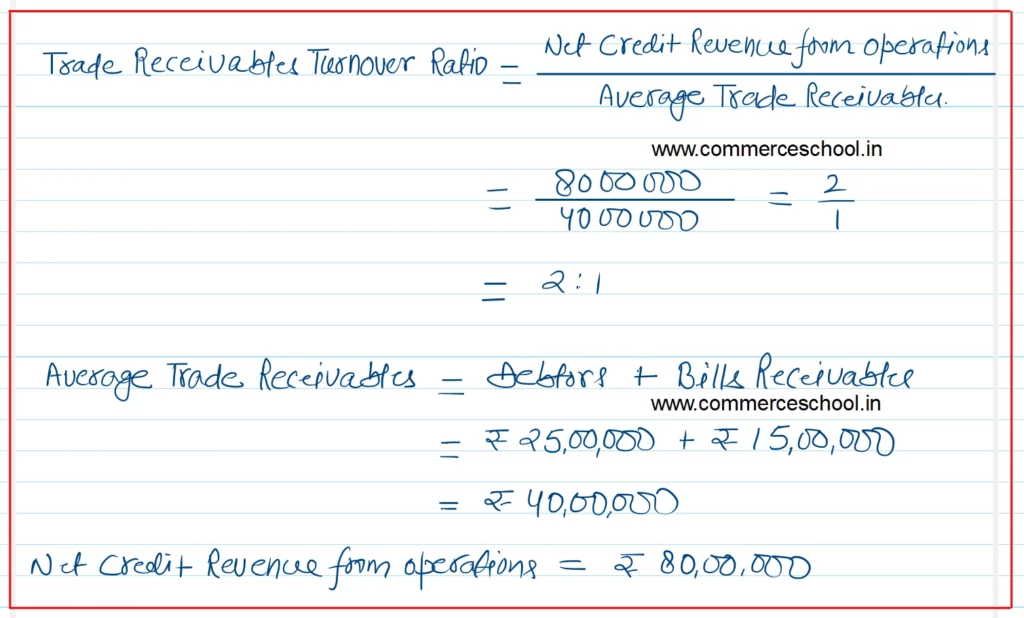 Trade Receivables Turnover Ratio = Net Credit Revenue from operations
Average Trade Receivables.
www.commerceschool.in
= 8000000 = 2
4000000 1
= 2:1
Average Trade Receivables = Debtors + Bills Receivables
www.commerceschool.in
= ₹ 25,00,000 + ₹ 15,00,000
= ₹ 40,00,000
Net Credit Revenue from operations = ₹ 80,00,000